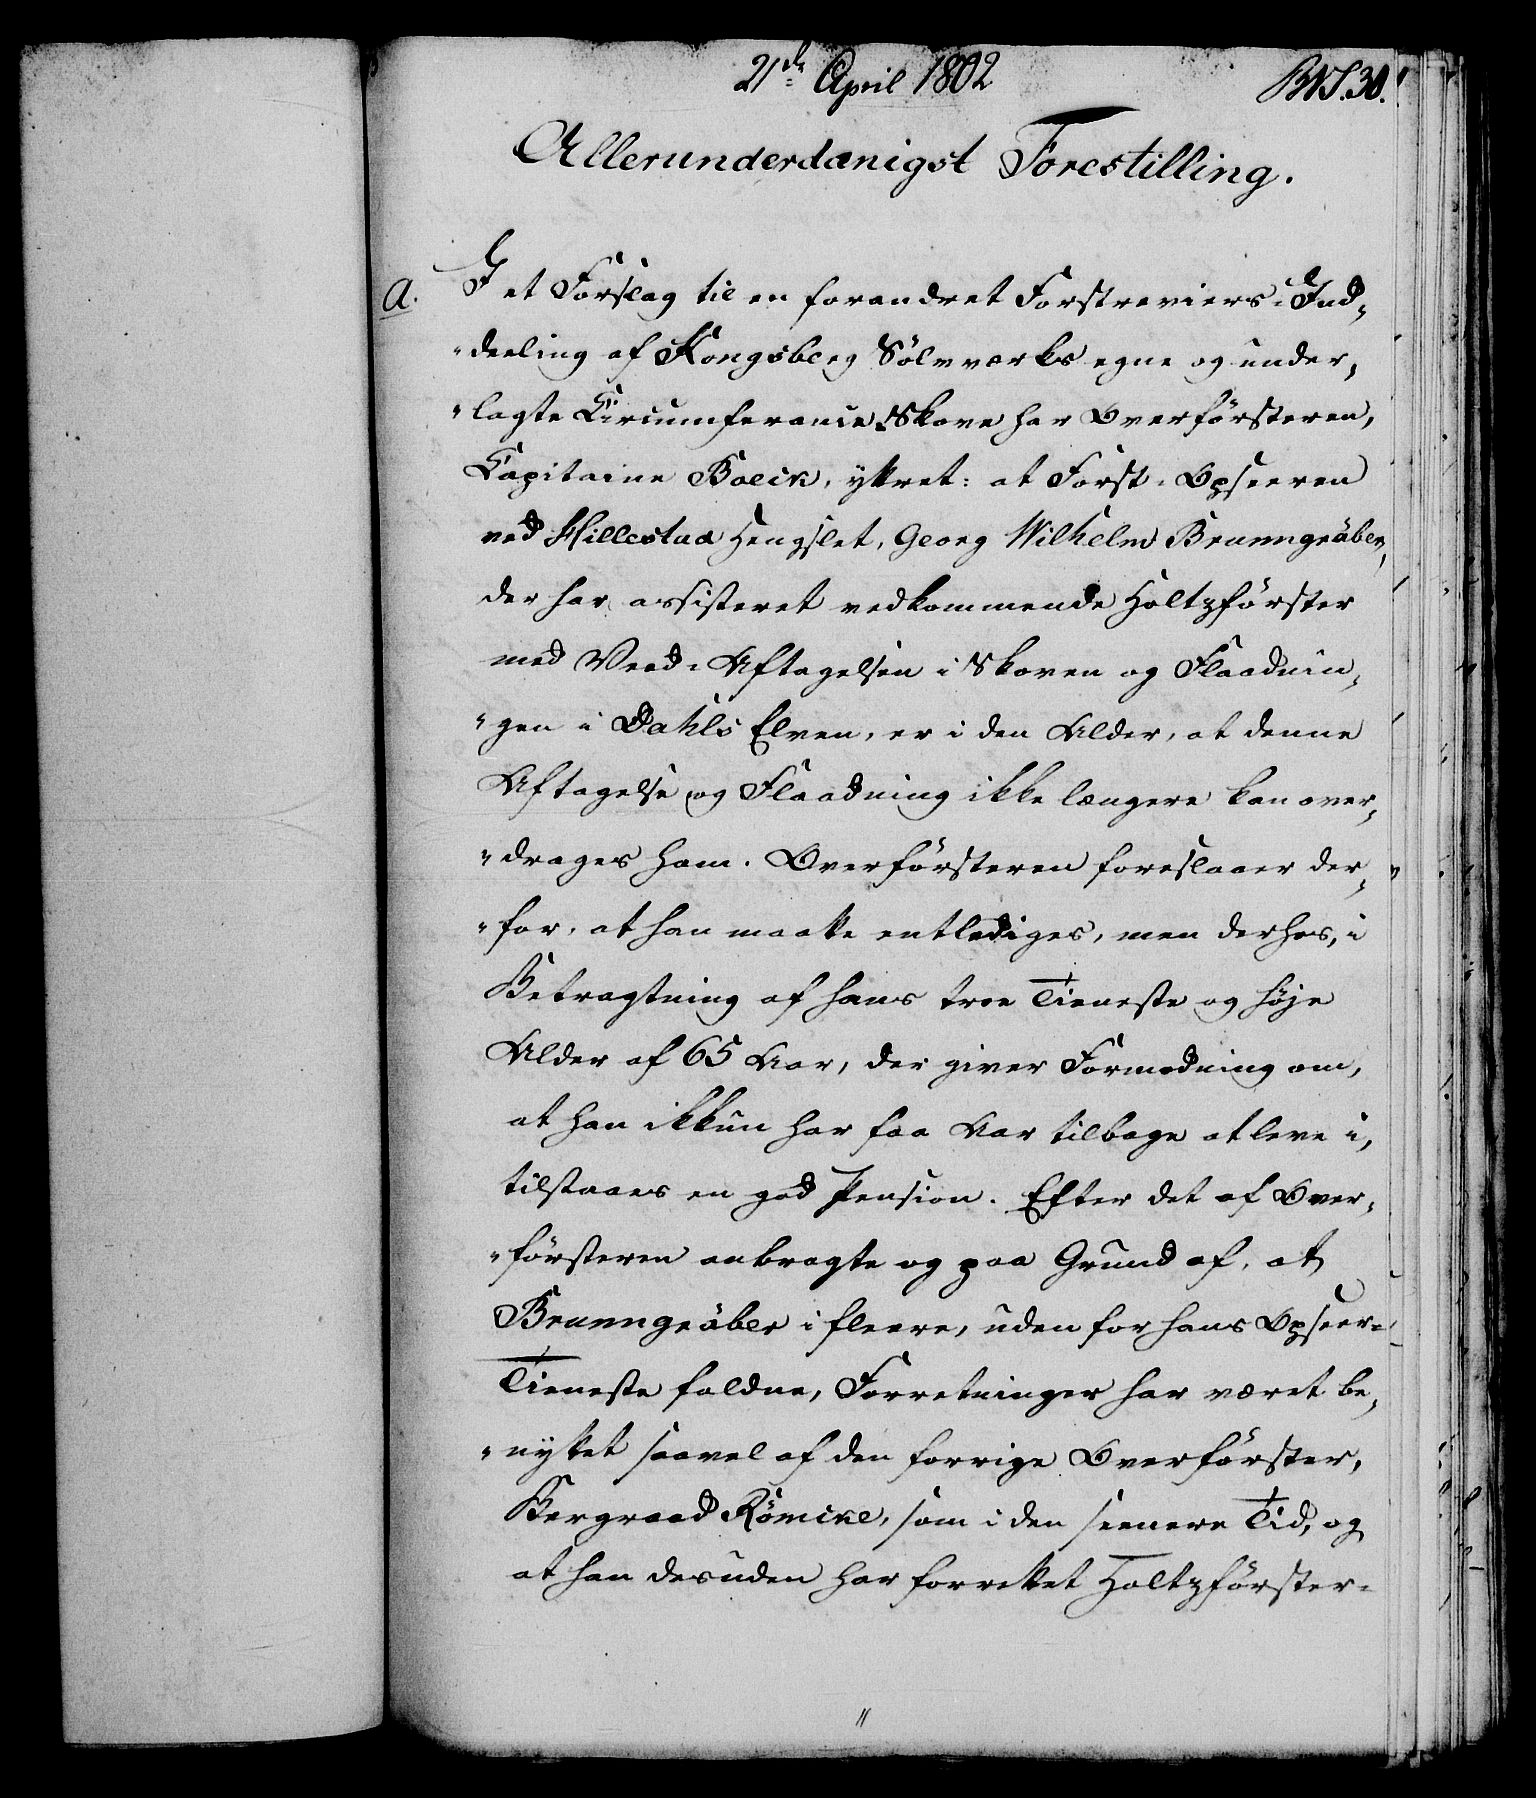 21de April 1802
BNS. 30.
Allerunderdanigst Forestilling.
a.
I et Forslag til en forandret Forstreviers-Ind-
deeling af Kongsberg Sølvværks egne og under-
lagte Circumference Skove har Overförsteren,
Capitaine Boeck, yttret: at Forst-Opseeren
ved Hillestad Hengslet, Georg Wilhelm Brunngräber,
der har assisteret vedkommende Holtzförster
med Veed-Aftagelsen i Skoven og Flaadnin-
gen i Dahls Elven, er i den Alder, at denne
Aftagelse og Flaadning ikke længere kan over-
drages ham. Overförsteren foreslaaer der-
for, at han maatte entlediges, men derhos, i
Betragtning af hans troe Tieneste og høje
Alder af 65 Aar, der giver Formodning om,
at han ikkun har faa Aar tilbage at leve i,
tilstaaes en god Pension. Efter det af Over-
försteren anbragte og paa Grund af, at
Brunngräber i fleere, uden for hans Opseer-
Tieneste faldne, Forretninger har været be-
nyttet saavel af den forrige Overförster,
Bergraad Römcke, som i den seenere Tid, og
at han desuden har forrettet Holtzförster-